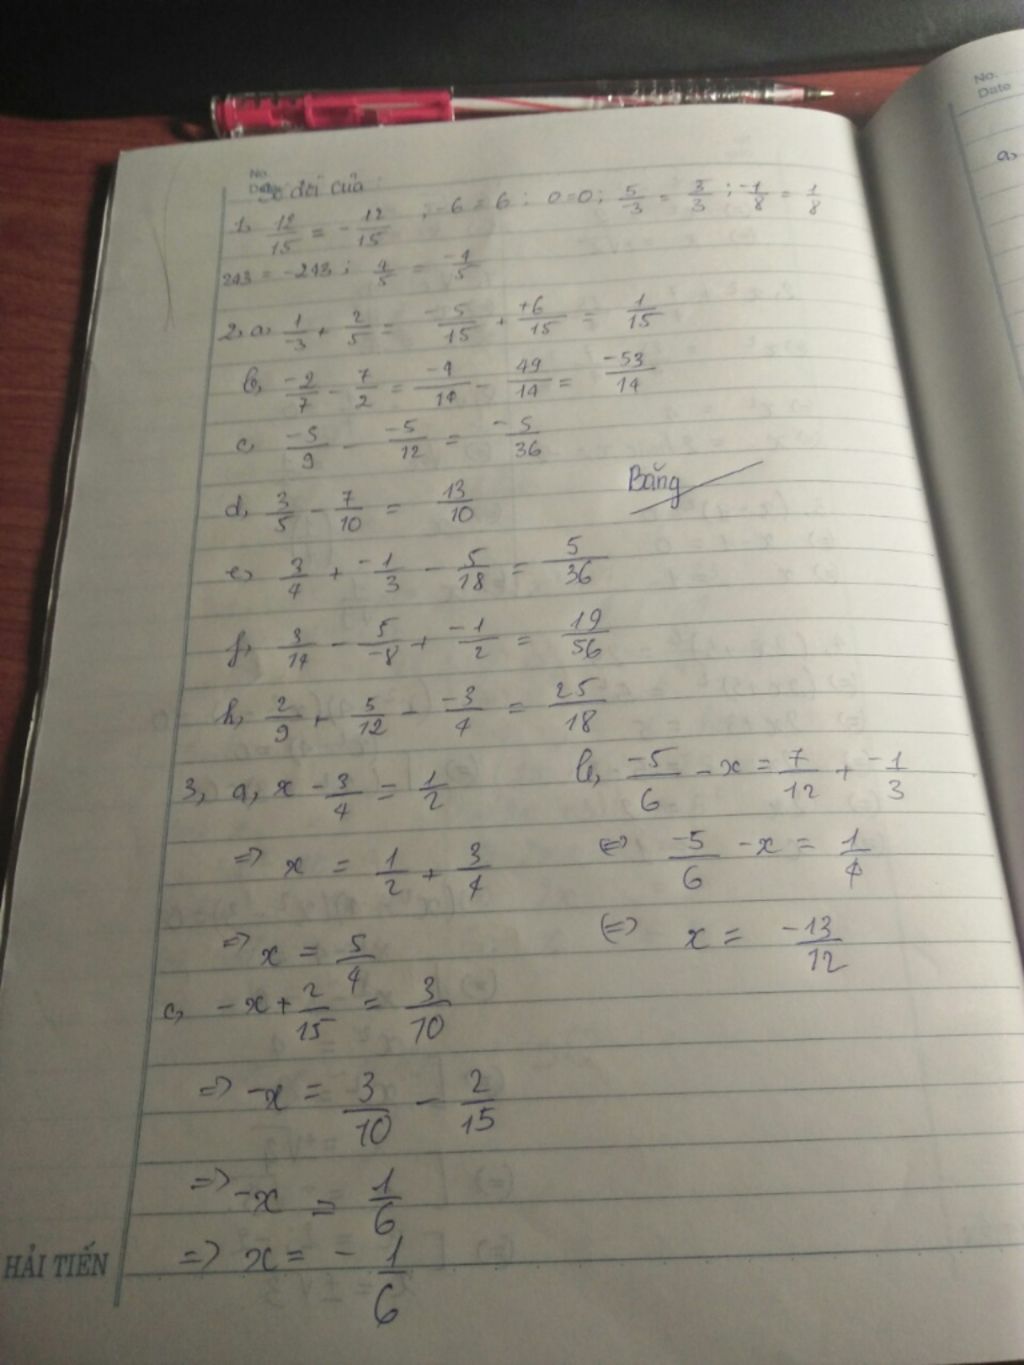 No.
Số đối của:
1, 12/15 = -12/15 ; -6 = 6 ; 0=0 ; 5/-3 = 3/3 ; -1/8 = 1/8
243 = -243 ; 4/5 = -4/5
2, a, 1/-3 + 2/5 = -5/15 + +6/15 = 1/15
b, -2/7 - 7/2 = -4/14 - 49/14 = -53/14
c, -5/9 - -5/12 = -5/36
d, 3/5 - 7/10 = 13/10
Bằng
e, 3/4 + -1/3 - 5/18 = 5/36
f, 3/14 - 5/-8 + -1/2 = 19/56
h, 2/9 + 5/12 - -3/4 = 25/18
3, a, x - 3/4 = 1/2
=> x = 1/2 + 3/4
=> x = 5/4
b, -5/6 - x = 7/12 + -1/3
<=> -5/6 - x = 1/4
<=> x = -13/12
c, -x + 2/15 = 3/10
=> -x = 3/10 - 2/15
=> -x = 1/6
=> x = - 1/6
HẢI TIẾN
No.
Date
a,